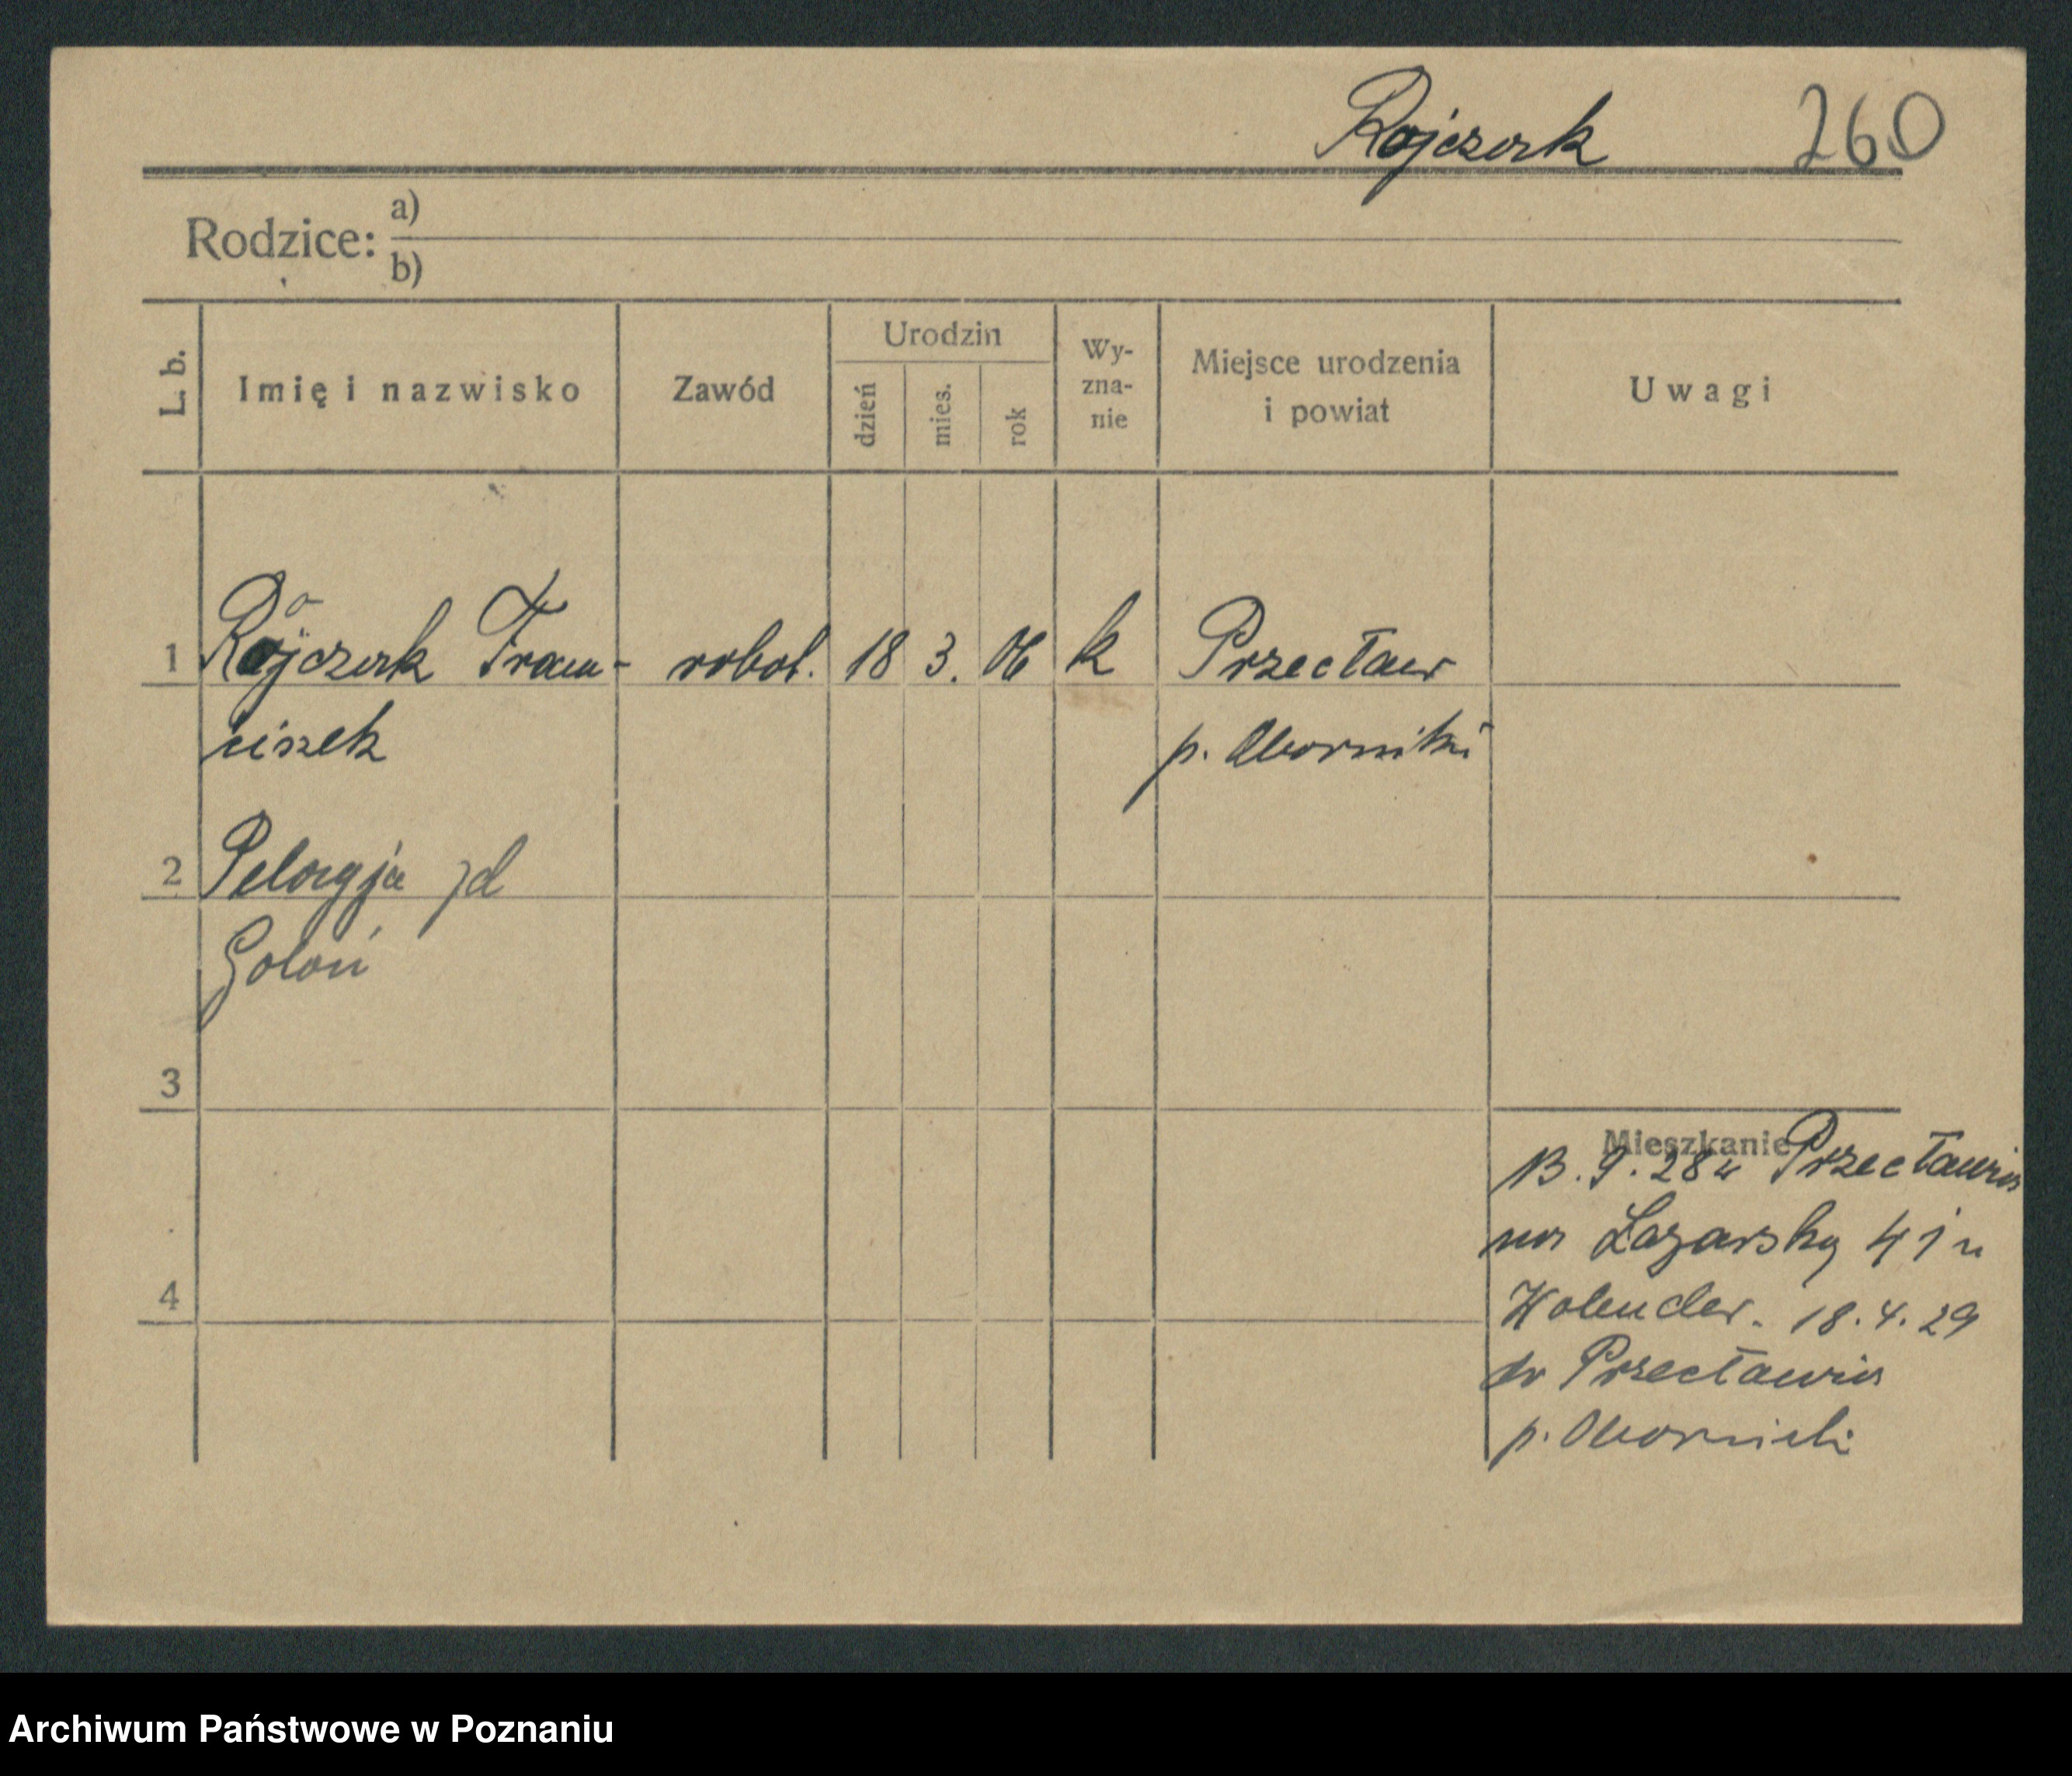 Rojczak 260
Rodzice: a)
b)
L. b. Imię i nazwisko Zawód Urodzin dzień mies. rok Wy-zna-nie Miejsce urodzenia i powiat Uwagi
1 Rojczak Fran- robot. 18 3. 06 k Przecław
ciszek p. Oborniki
2 Pelagja zd
Goloń
3
Mieszkanie
13.9.28 z Przecławia
na Łazarską 41 u
4 Holender. 18.4.29
do Przecławia
p. Obornicki
Archiwum Państwowe w Poznaniu